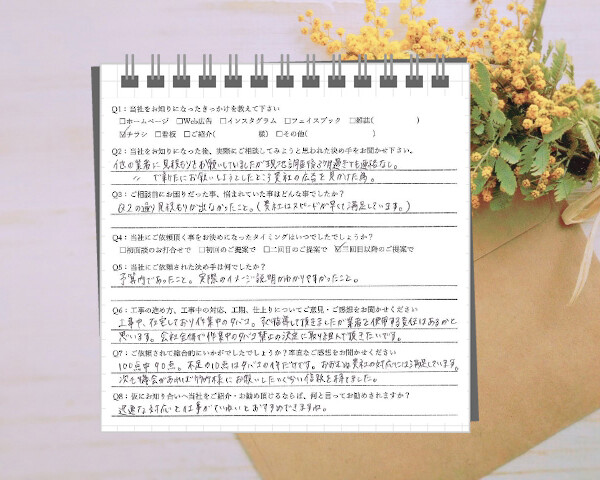 Q1：当社をお知りになったきっかけを教えて下さい
□ホームページ □Web広告 □インスタグラム □フェイスブック □雑誌( )
☑チラシ □看板 □ご紹介( 様) □その他( )
Q2：当社をお知りになった後、実際にご相談してみようと思われた決め手をお聞かせ下さい。
他の業者に見積もりをお願いしていましたが現地調査後 過ぎても連絡なし。
〃 で新たにお願いしようとしたところ貴社の広告を見かけた為。
Q3：ご相談前にお困りだった事、悩まれていた事はどんな事でしたか？
Q2の通り見積もりが出なかったこと。(貴社はスピードが早くて満足しています。)
Q4：当社にご依頼頂く事をお決めになったタイミングはいつでしたでしょうか？
□初面談のお打合せで □初回のご提案で □二回目のご提案で ☑三回目以降のご提案で
Q5：当社にご依頼された決め手は何でしたか？
予算内であったこと。実際のイメージ説明がわかりやすかったこと。
Q6：工事の進め方、工事中の対応、工期、仕上りについてご意見・ご感想をお聞かせください
工事中、在宅しており作業中のタバコ。 指導して頂きましたが業者を使用する責任はあるかと
思います。会社全体で作業中のタバコ禁止の決定に取り組んで頂きたいです。
Q7：ご依頼されて総合的にいかがでしたでしょうか？率直なご感想をお聞かせください
100点中90点。不足の10点はタバコの件だけです。おおむね貴社の対応には満足しています。
次も機会があれば 様にお願いしたいぐらい信頼を持てました。
Q8：仮にお知り合いへ当社をご紹介・お勧め頂けるならば、何と言ってお勧めされますか？
迅速な対応と仕事がていねいとおすすめできますね。